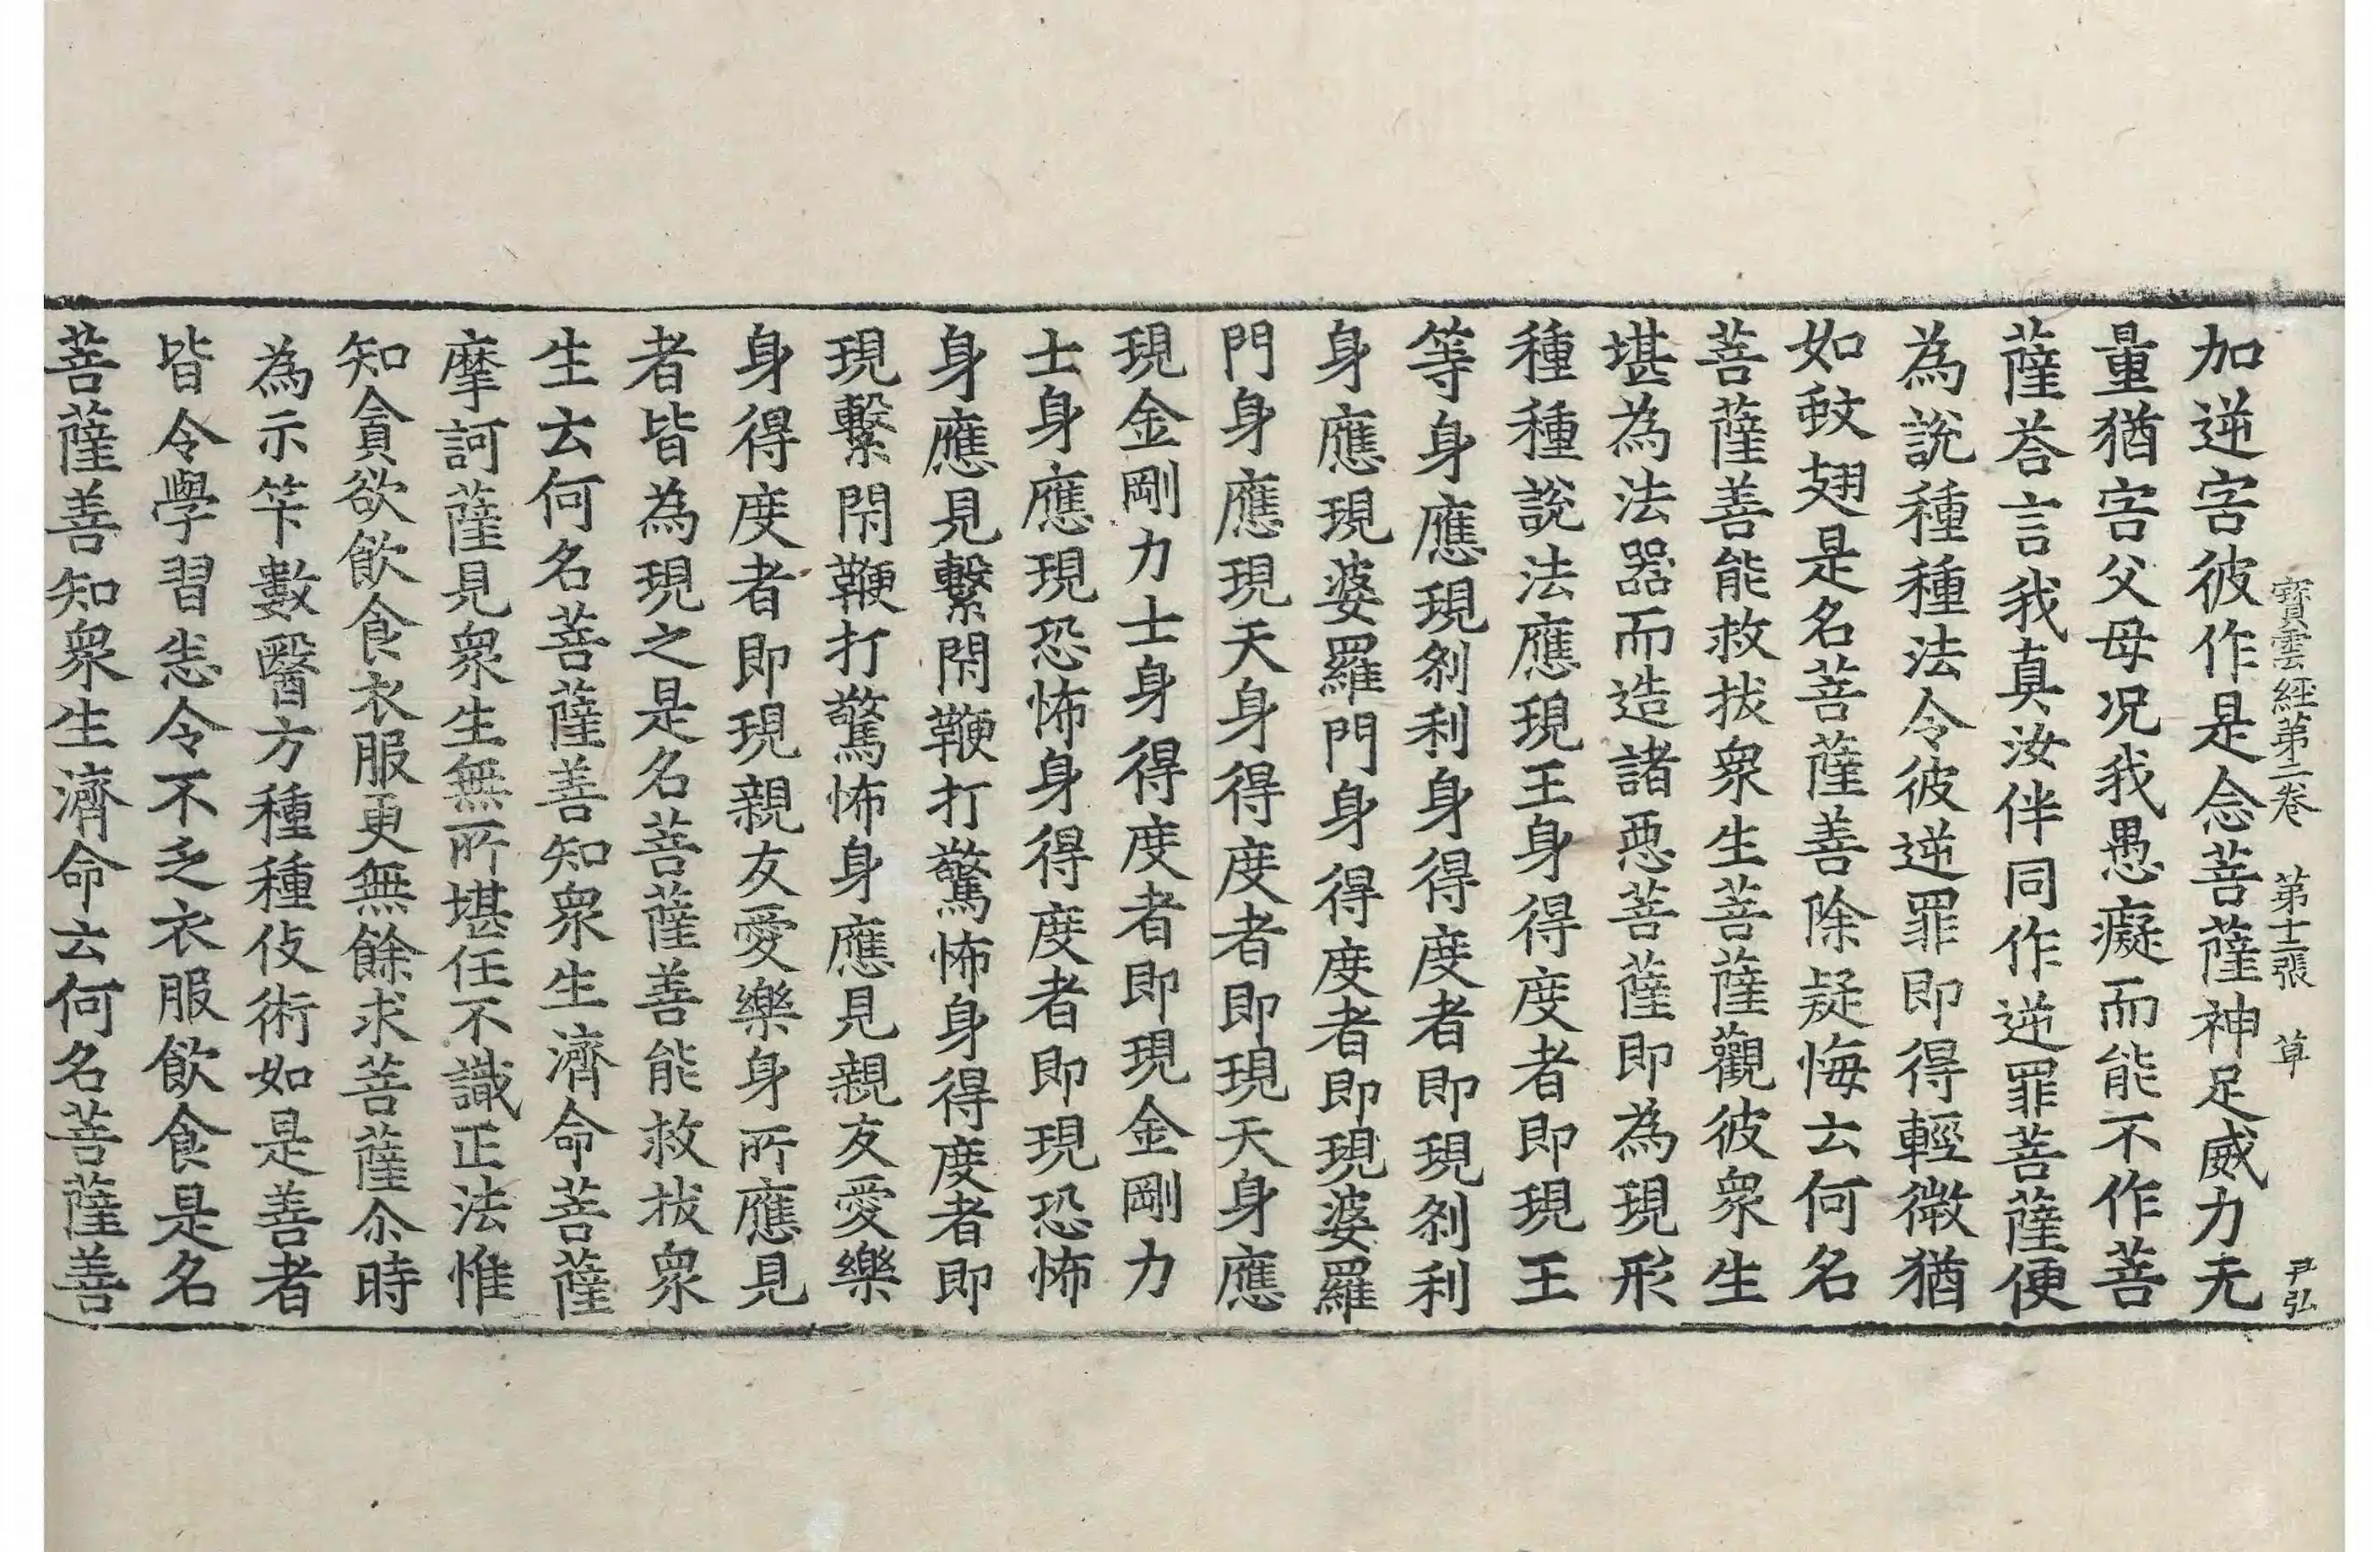 寶雲經第二卷 第十二張 草 尹弘
加逆害彼作是念菩薩神足威力无
量猶害父母况我愚癡而能不作菩
薩荅言我真汝伴同作逆罪菩薩便
為說種種法令彼逆罪即得輕微猶
如蚊翅是名菩薩善除疑悔云何名
菩薩善能救拔衆生菩薩觀彼衆生
堪為法器而造諸惡菩薩即為現形
種種說法應現王身得度者即現王
等身應現刹利身得度者即現刹利
身應現婆羅門身得度者即現婆羅
門身應現天身得度者即現天身應
現金剛力士身得度者即現金剛力
士身應現恐怖身得度者即現恐怖
身應見繫閇鞭打驚怖身得度者即
現繫閇鞭打驚怖身應見親友愛樂
身得度者即現親友愛樂身所應見
者皆為現之是名菩薩善能救拔衆
生云何名菩薩善知衆生濟命菩薩
摩訶薩見衆生無所堪任不識正法惟
知貪欲飲食衣服更無餘求菩薩尒時
為示筭數醫方種種伎術如是善者
皆令學習悉令不乏衣服飲食是名
菩薩善知衆生濟命云何名菩薩善